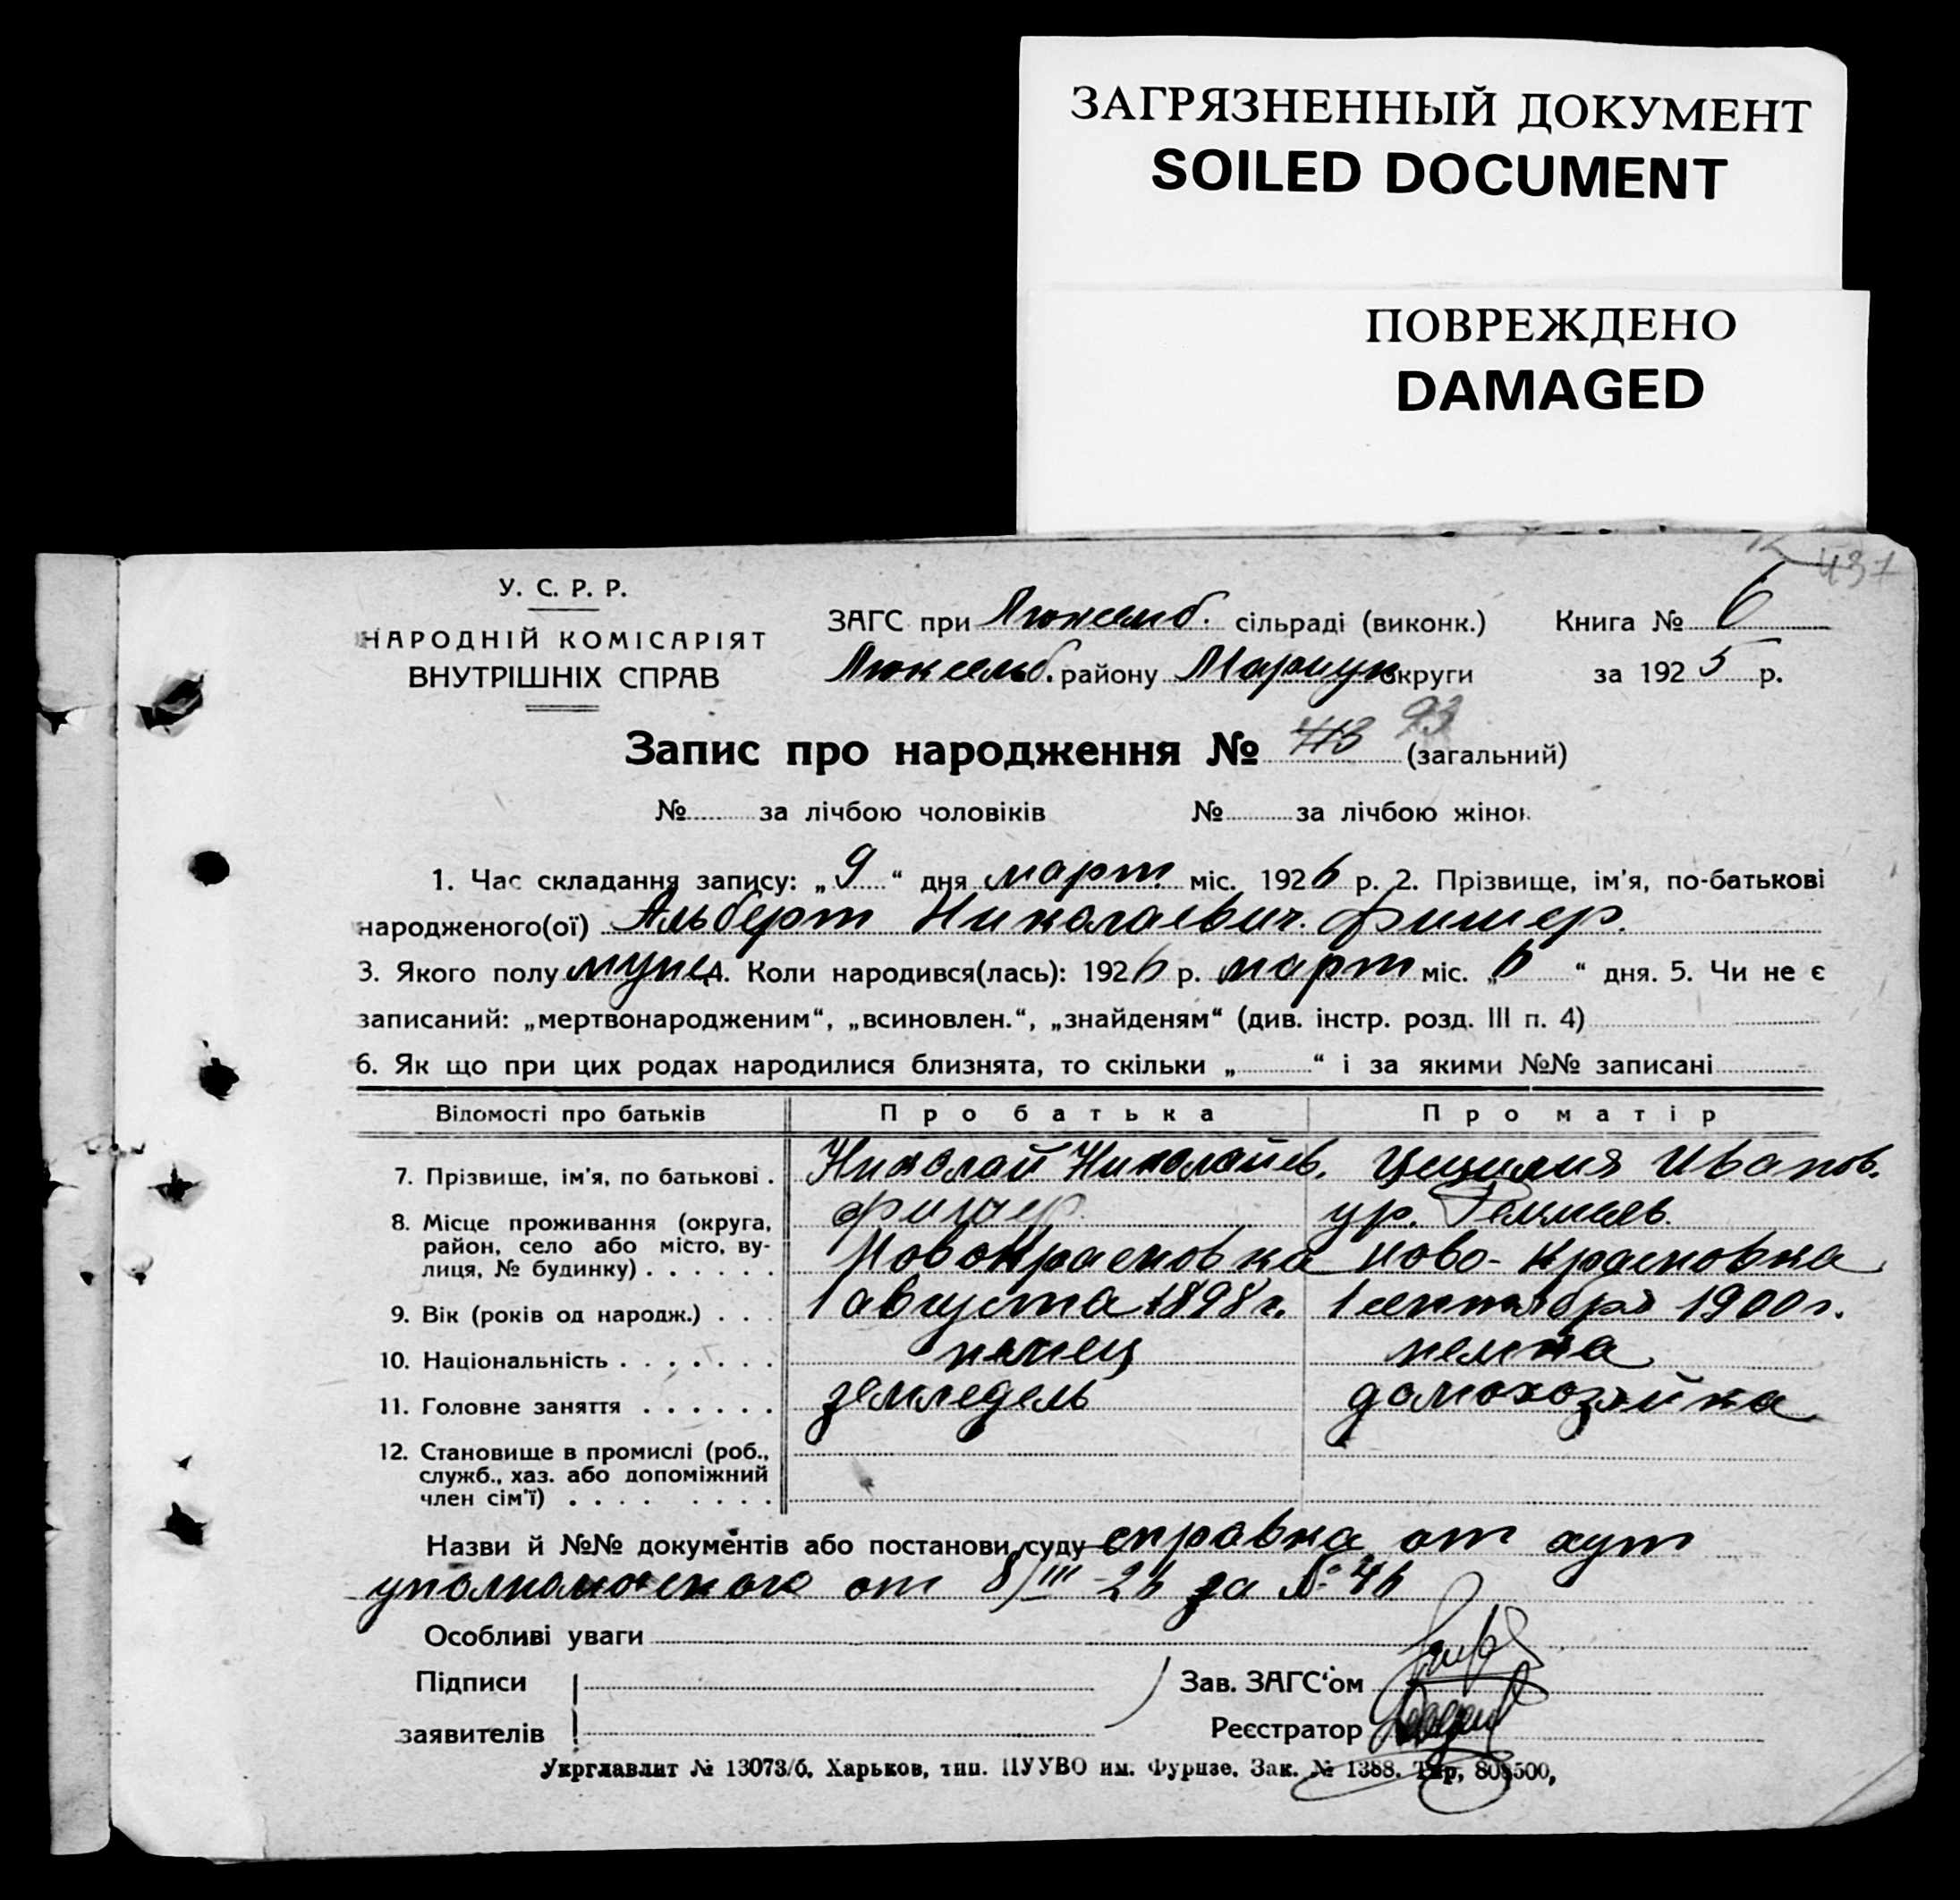 ЗАГРЯЗНЕННЫЙ ДОКУМЕНТ
SOILED DOCUMENT
ПОВРЕЖДЕНО
DAMAGED
437
У. С. Р. Р.
НАРОДНІЙ КОМІСАРІЯТ
ВНУТРІШНІХ СПРАВ
ЗАГС при Люксемб. сільраді (виконк.) Книга № 6
Люксемб. району Мариуп округи за 1925 р.
Запис про народження № 713 93 (загальний)
№ за лічбою чоловіків № за лічбою жінок
1. Час складання запису: „9“ дня март міс. 1926 р. 2. Прізвище, ім'я, по-батькові
народженого(ої) Альберт Николаевич Фишер.
3. Якого полу муж 4. Коли народився(лась): 1926 р. март міс. „6“ дня. 5. Чи не є
записаний: „мертвонародженим“, „всиновлен.“, „знайденям“ (див. інстр. розд. III п. 4)
6. Як що при цих родах народилися близнята, то скільки „ “ і за якими №№ записані
Відомості про батьків Про батька Про матір
7. Прізвище, ім'я, по батькові . Николай Николаев. Цецилия Иванов.
Фишер ур.
8. Місце проживання (округа, район, село або місто, ву-
лиця, № будинку) . . . . . . Новокрасновка Ново-Красновка
9. Вік (років од народж.) . . . 1 августа 1898 г. 1 сентября 1900 г.
10. Національність . . . . . . . немец немка
11. Головне заняття . . . . . . земледель домохозяйка
12. Становище в промислі (роб.,
служб., хаз. або допоміжний
член сім'ї) . . . . . . . .
Назви й №№ документів або постанови суду справка от хут
уполномоченого от 8/III-26 за № 46
Особливі уваги
Підписи
заявителів
Зав. ЗАГС'ом
Реєстратор
Укрглавлит № 13073/б. Харьков, тип. ЦУУВО им. Фрунзе. Зак. № 1388. Тир,